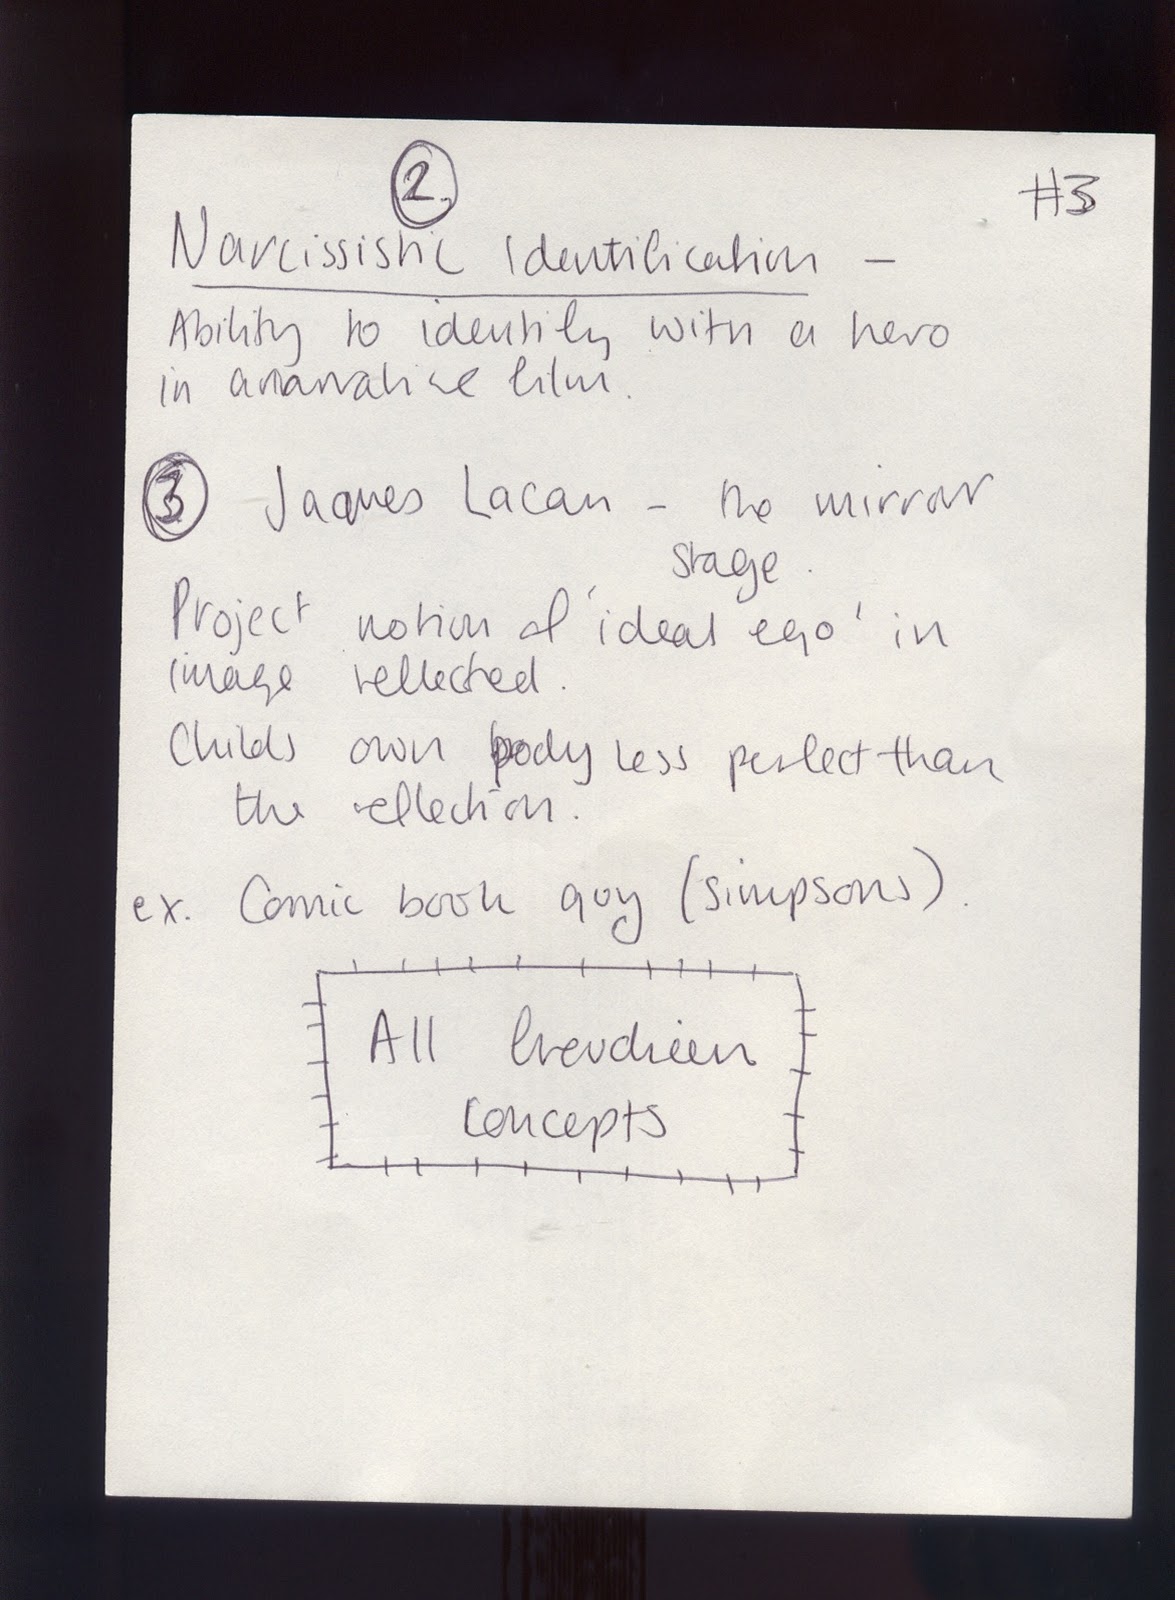 2.
#3
Narcissistic Identification –
Ability to identify with a hero
in a narrative film.
3 Jaques Lacan – the mirror
stage.
Project notion of 'ideal ego' in
image reflected.
Childs own body less perfect than
the reflection.
ex. Comic book guy (simpsons).
All freudieen
concepts